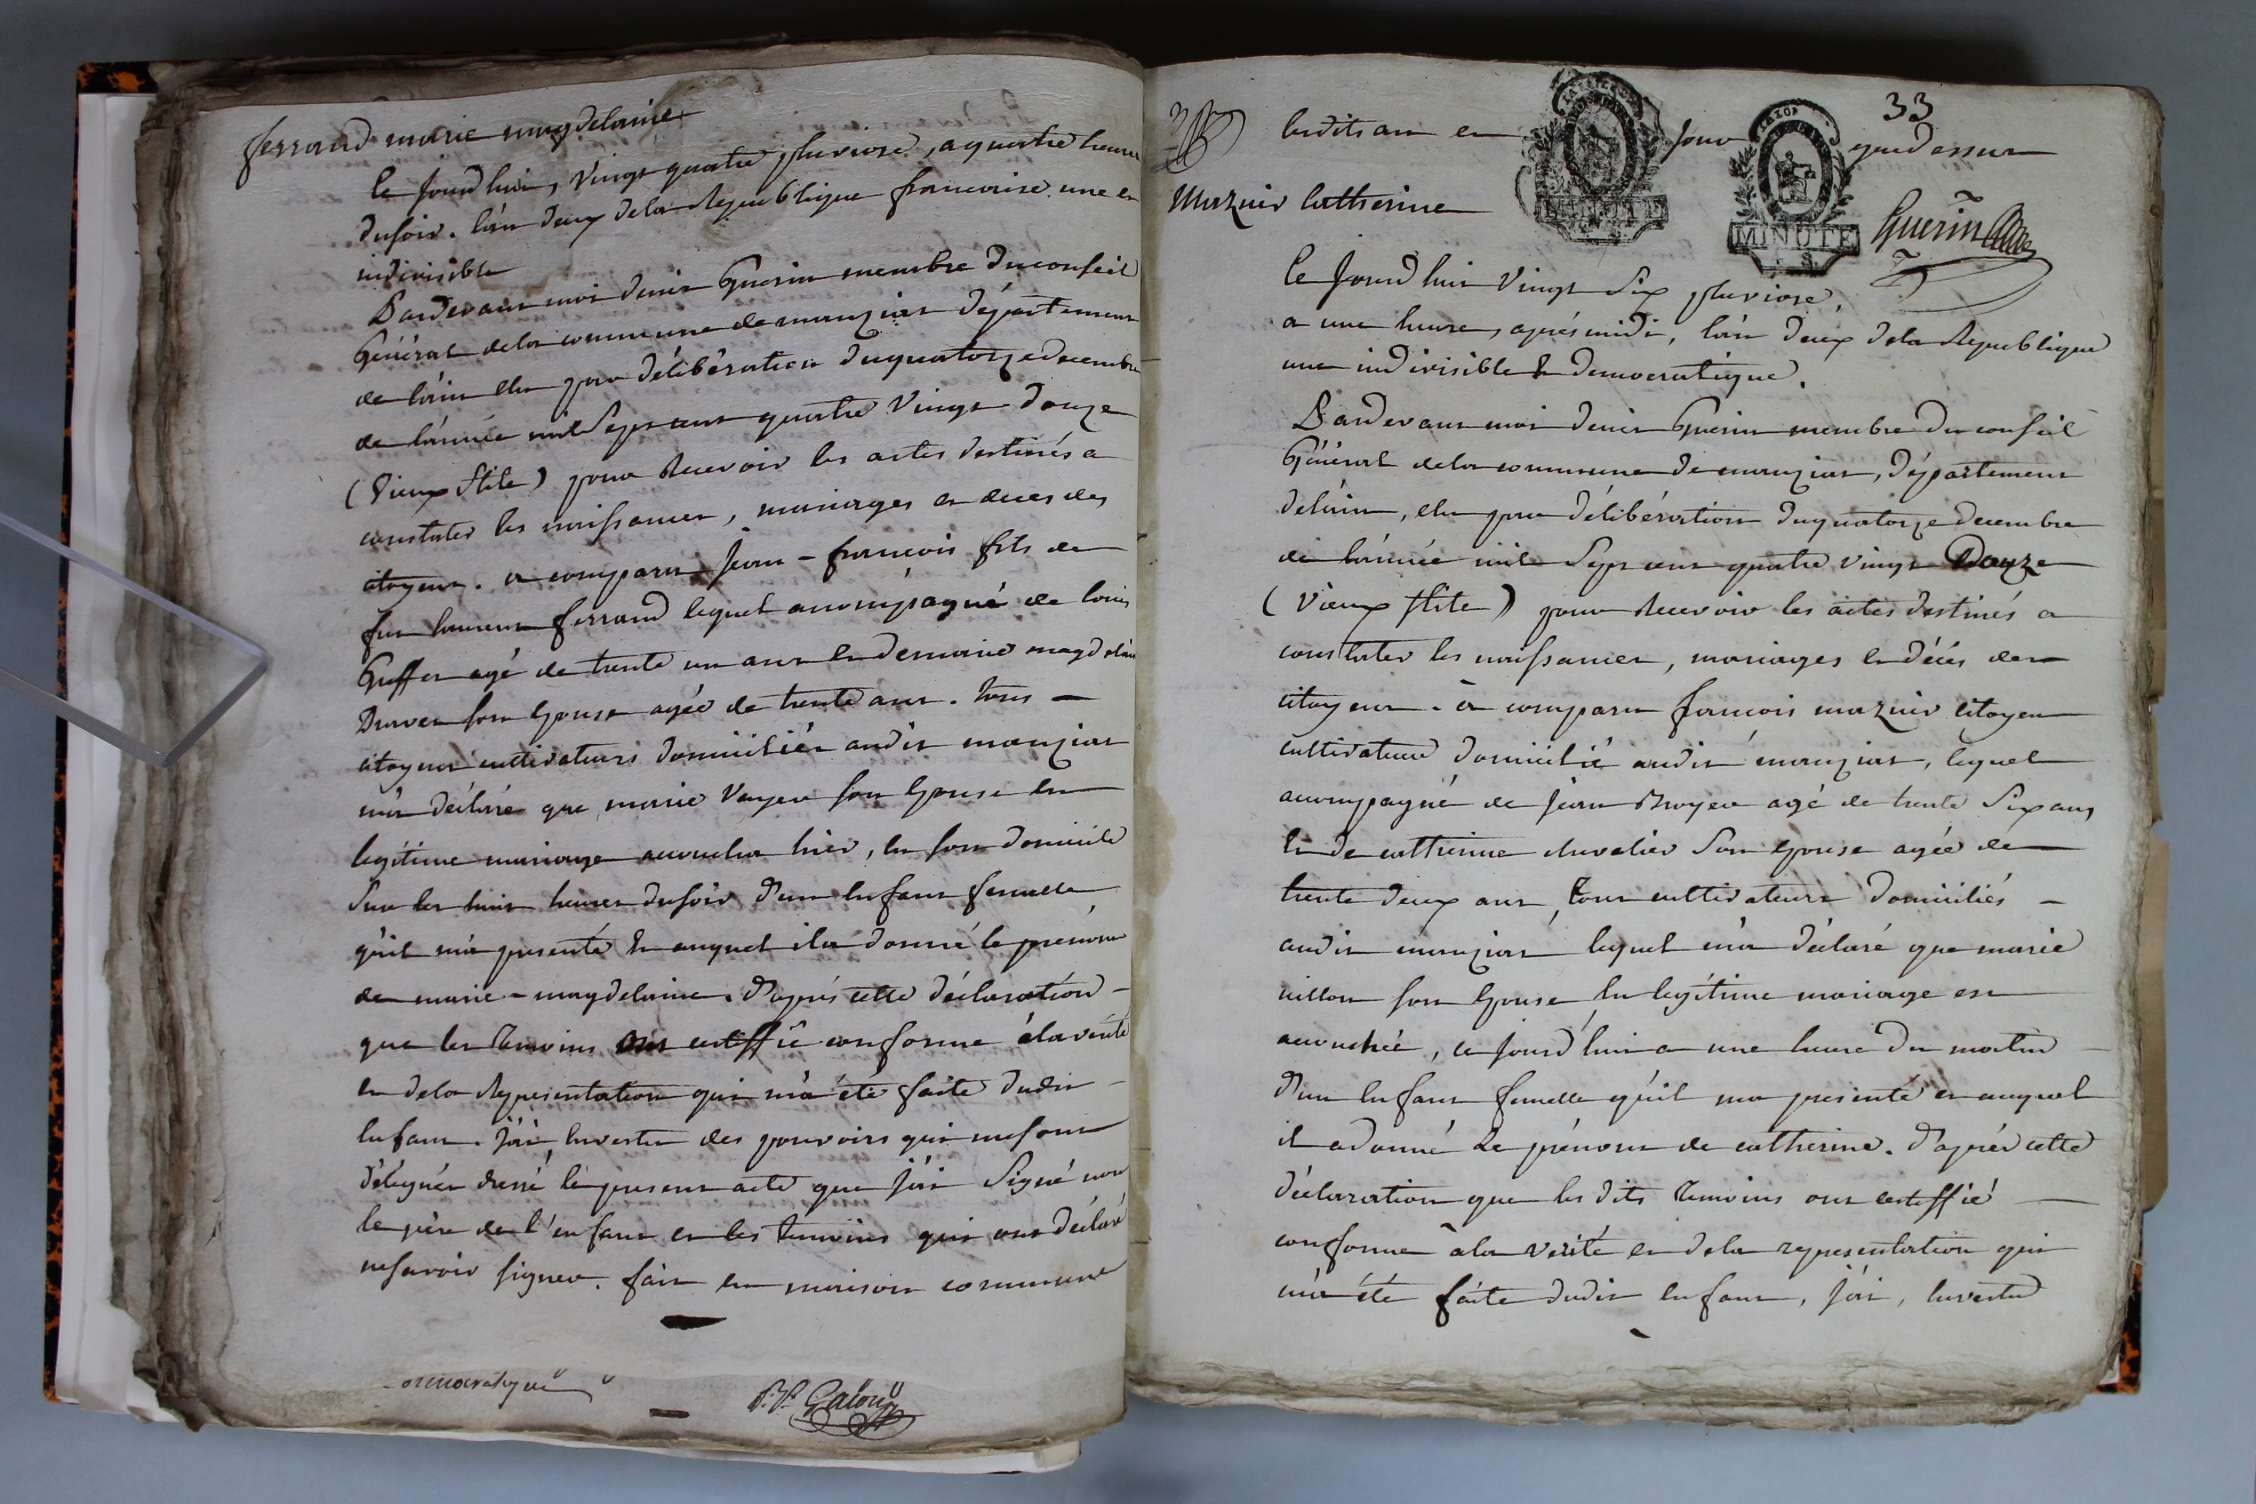 ferrand marie magdelaine
Ce Jourd'hui, Vingt quatre pluviose, a quatre heures
du soir. l'an deux de la Republique francaise une et
indivisible
Pardevant moi denis Guerin membre du conseil
Général de la commune de manziat département
de l'ain elu par délibération du quatorze decembre
de l'année mil Sept cent quatre Vingt Douze
(Vieux stile) pour Recevoir les actes destinés a
constater les naissances, mariages et deces des
citoyens. a comparu Jean-francois fils de
feu laurent ferrand lequel accompagné de louis
Guffet agé de trente un ans et de marie magdelaine
son epouse agée de trente ans. tous
citoyens cultivateurs domiciliés audit manziat
m'a déclaré que marie Voyeu son epouse en
legitime mariage accoucha hier, en son domicile
Sur les huit heures du soir d'un enfant femelle
qu'il m'a presenté et auquel il a donné le prenom
de marie-magdelaine. d'après cette déclaration
que les temoins ont certiffié conforme à la vérité
et de la Representation qui m'a été faite dudit
enfant. j'ai, en vertu des pouvoirs qui me sont
délégués dressé le present acte que j'ai Signé non
le père de l'enfant et les temoins qui ont déclaré
ne savoir signer. fait en maison commune
P.P. Gacon
33
lesdits an et Jour que dessus
MINUTE
MINUTE
Guerin
Mazuir Catherine
Ce Jourd'hui Vingt Six pluviose,
a une heure, après midi, l'an deux de la Republique
une indivisible & democratique.
Pardevant moi denis Guerin membre du conseil
Général de la commune de manziat, département
de l'ain, elu par délibération du quatorze decembre
de l'année mil Sept cent quatre vingt Douze
(Vieux stile) pour Recevoir les actes destinés a
constater les naissances, mariages et décès des
citoyens. a comparu francois mazuir citoyen
cultivateur domicilié audit manziat, lequel
accompagné de Jean Broyer agé de trente Six ans
et de catherine chevalier Son epouse agée de
trente deux ans, tous cultivateurs domiciliés
audit manziat lequel m'a déclaré que marie
son epouse en legitime mariage est
accouchée, ce jourd'hui a une heure du matin
d'un enfant femelle qu'il m'a presenté et auquel
il a donné Le prénom de catherine. d'après cette
déclaration que les dits temoins ont certiffié
conforme à la verité et de la representation qui
m'a été faite dudit enfant, j'ai, en vertu